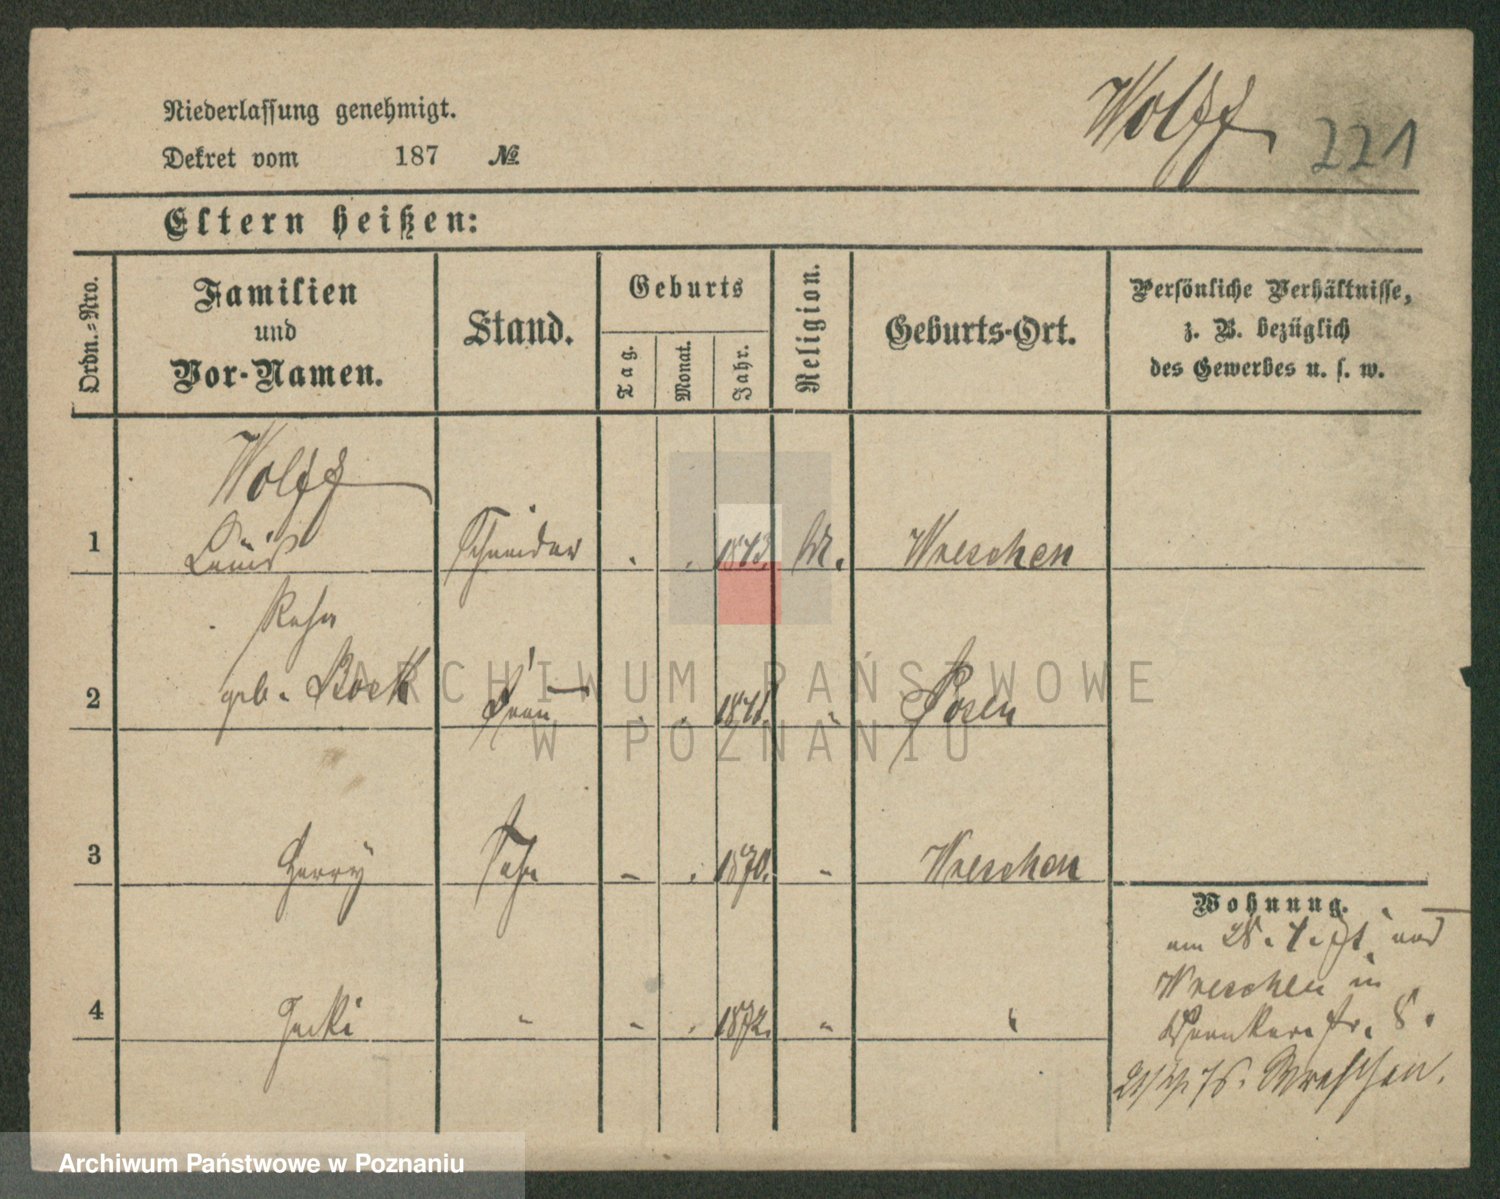 Niederlassung genehmigt.
Dekret vom 187 №
Wolff
221
Eltern heißen:
Ordn.-Nro.
Familien
und
Vor-Namen.
Stand.
Geburts
Tag. Monat. Jahr.
Religion.
Geburts-Ort.
Persönliche Verhältnisse,
z. B. bezüglich
des Gewerbes u. s. w.
Wolff
1 Louis Schneider Wreschen
geb. Bock
2 Frau Posen
3 Harry Sohn 1870. Wreschen
4 1872.
Wohnung.
am
Wreschen in
8.
Wreschen.
ARCHIWUM PAŃSTWOWE
W POZNANIU
Archiwum Państwowe w Poznaniu